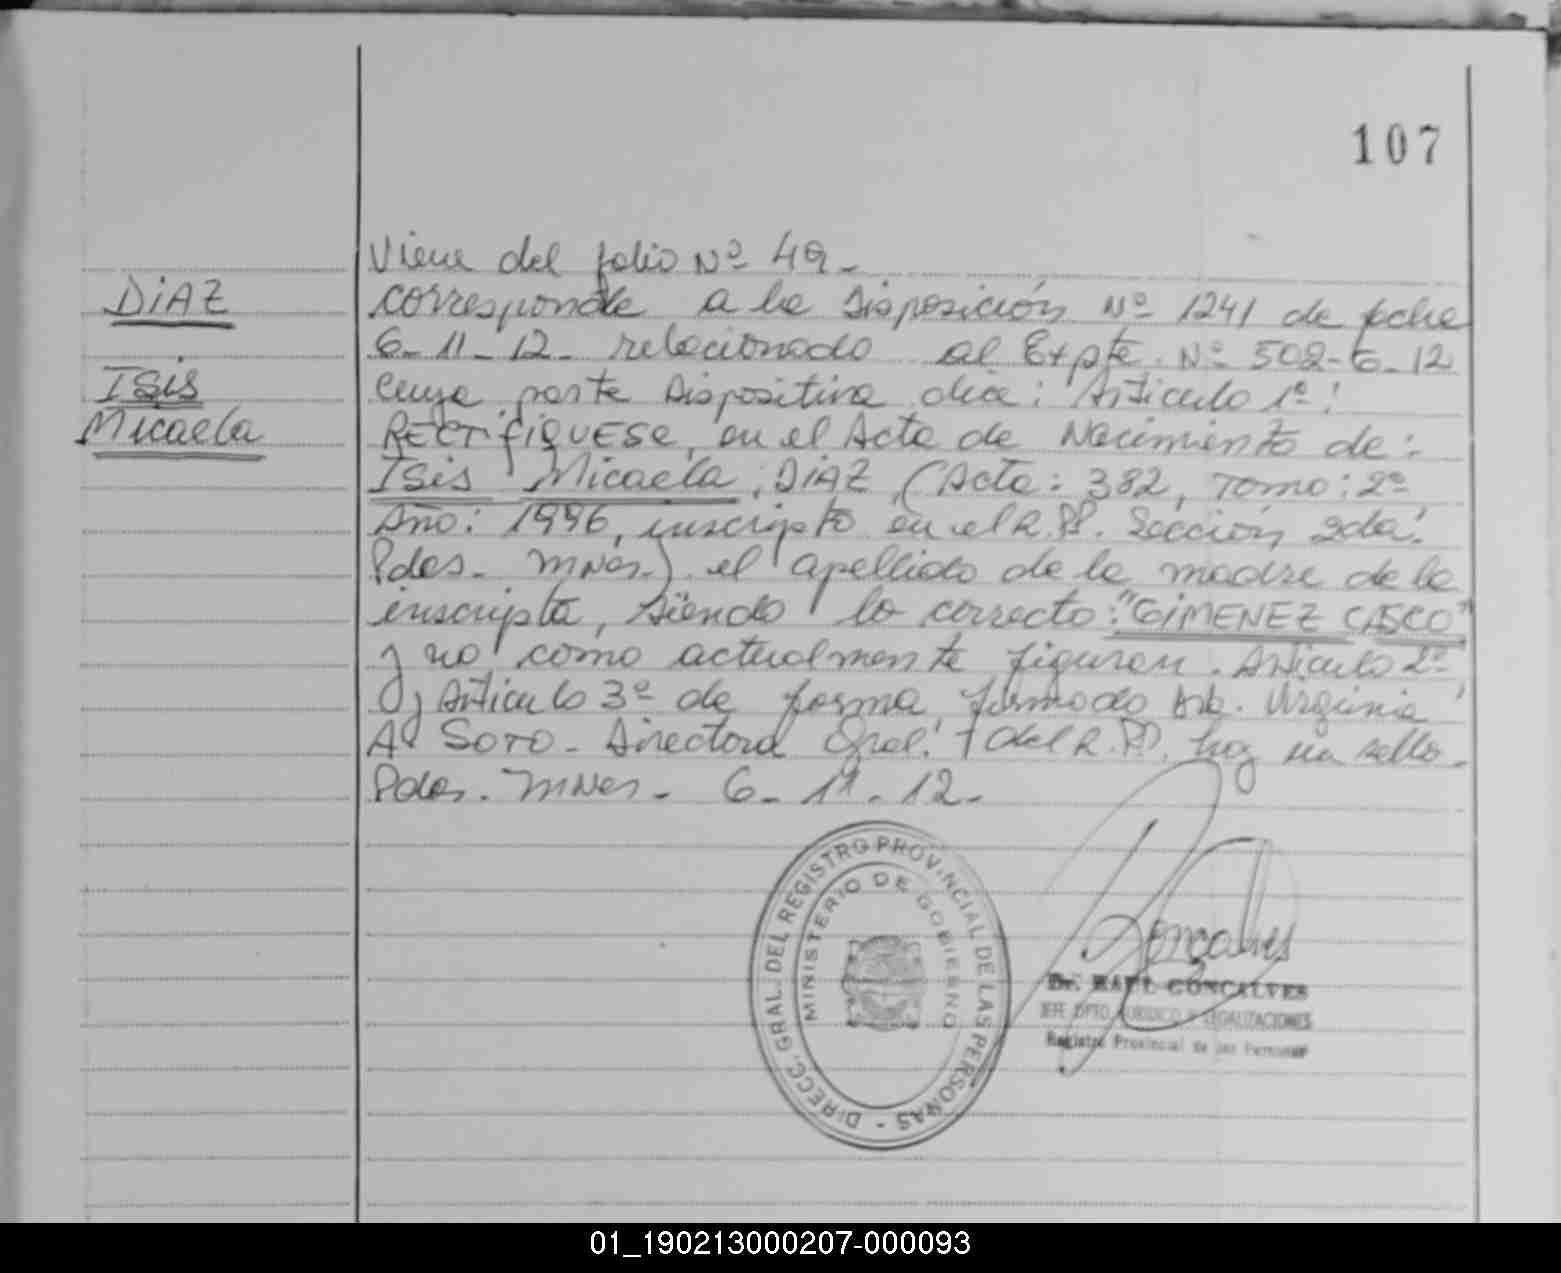 107
Viene del folio Nº 49-
DiAZ
corresponde a la Disposición Nº 1241 de fecha
6-11-12- relacionado al Expte. Nº 502-G-12
Isis
cuya parte Dispositiva dice: Articulo 1º:
Micaela
RECTifiQUESE, en el Acta de Nacimiento de:
Isis Micaela, DiAZ, (Acta: 382, Tomo: 2º
Año: 1996, inscripta en el R.PP. Sección 2da.
Pdas. MNes.) el apellido de la madre de la
inscripta, siendo lo correcto: "GiMENEZ CASCO"
y no como actualmente figuran. Articulo 2º
y Articulo 3º de forma firmado Virginia
A SOTO - Directora Gral. del R.PP. hay un sello.
Pdas. MNes. 6-11-12-
DIRECC. GRAL. DEL REGISTRO PROVINCIAL DE LAS PERSONAS -
MINISTERIO DE GOBIERNO
Goncalves
Dr. RAUL GONCALVES
JEFE DPTO. JURIDICO Y LEGALIZACIONES
Registro Provincial de las Personas
01_190213000207-000093